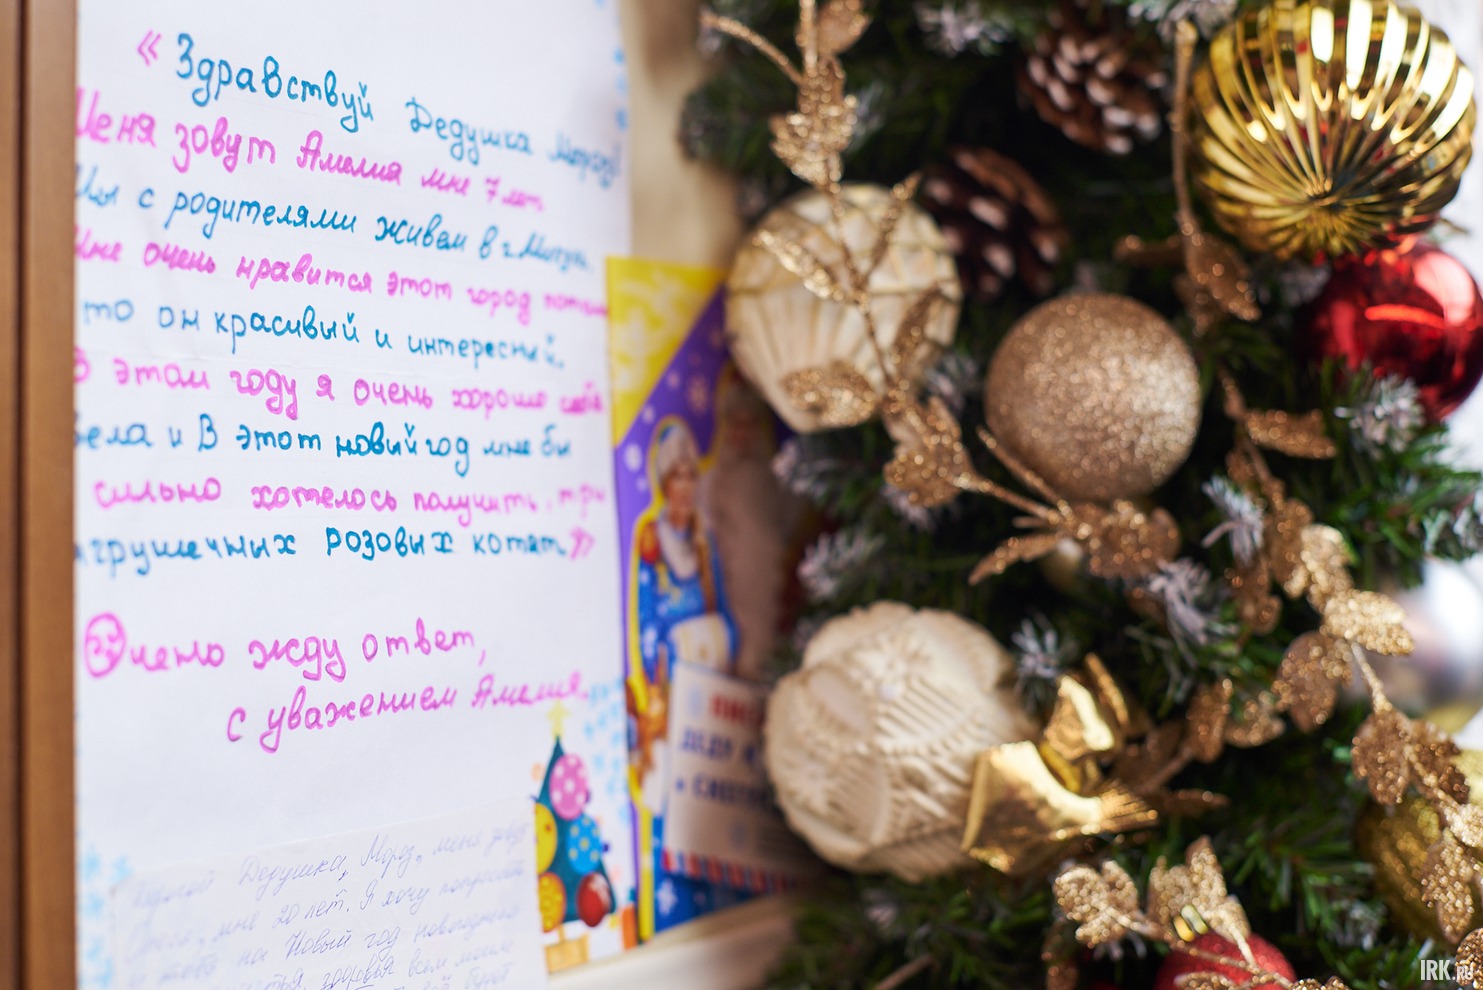 « Здравствуй Дедушка Мороз!
Меня зовут Амелия мне 7 лет.
Мы с родителями живем в г.
Мне очень нравится этот город
то он красивый и интересный.
В этом году я очень хорошо себя
вела и В этот новый год мне бы
сильно хотелось получить три
игрушечных розовых котят »
Очень жду ответ,
с уважением Амелия.
Дедушка, Мороз, меня зовут
мне 20 лет. Я хочу попросить
на Новый год
здоровья всем моим
ДЕДУ
IRK.RU